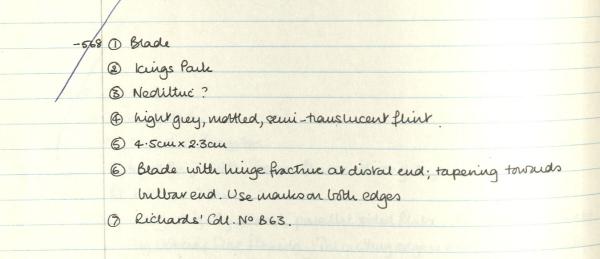 -568 ① Blade
② Kings Park
③ Neolithic ?
④ Light grey, mottled, semi-translucent flint.
⑤ 4.5cm x 2.3cm
⑥ Blade with hinge fracture at distal end; tapering towards
bulbar end. Use marks on both edges
⑦ Richards' Coll. No B63.